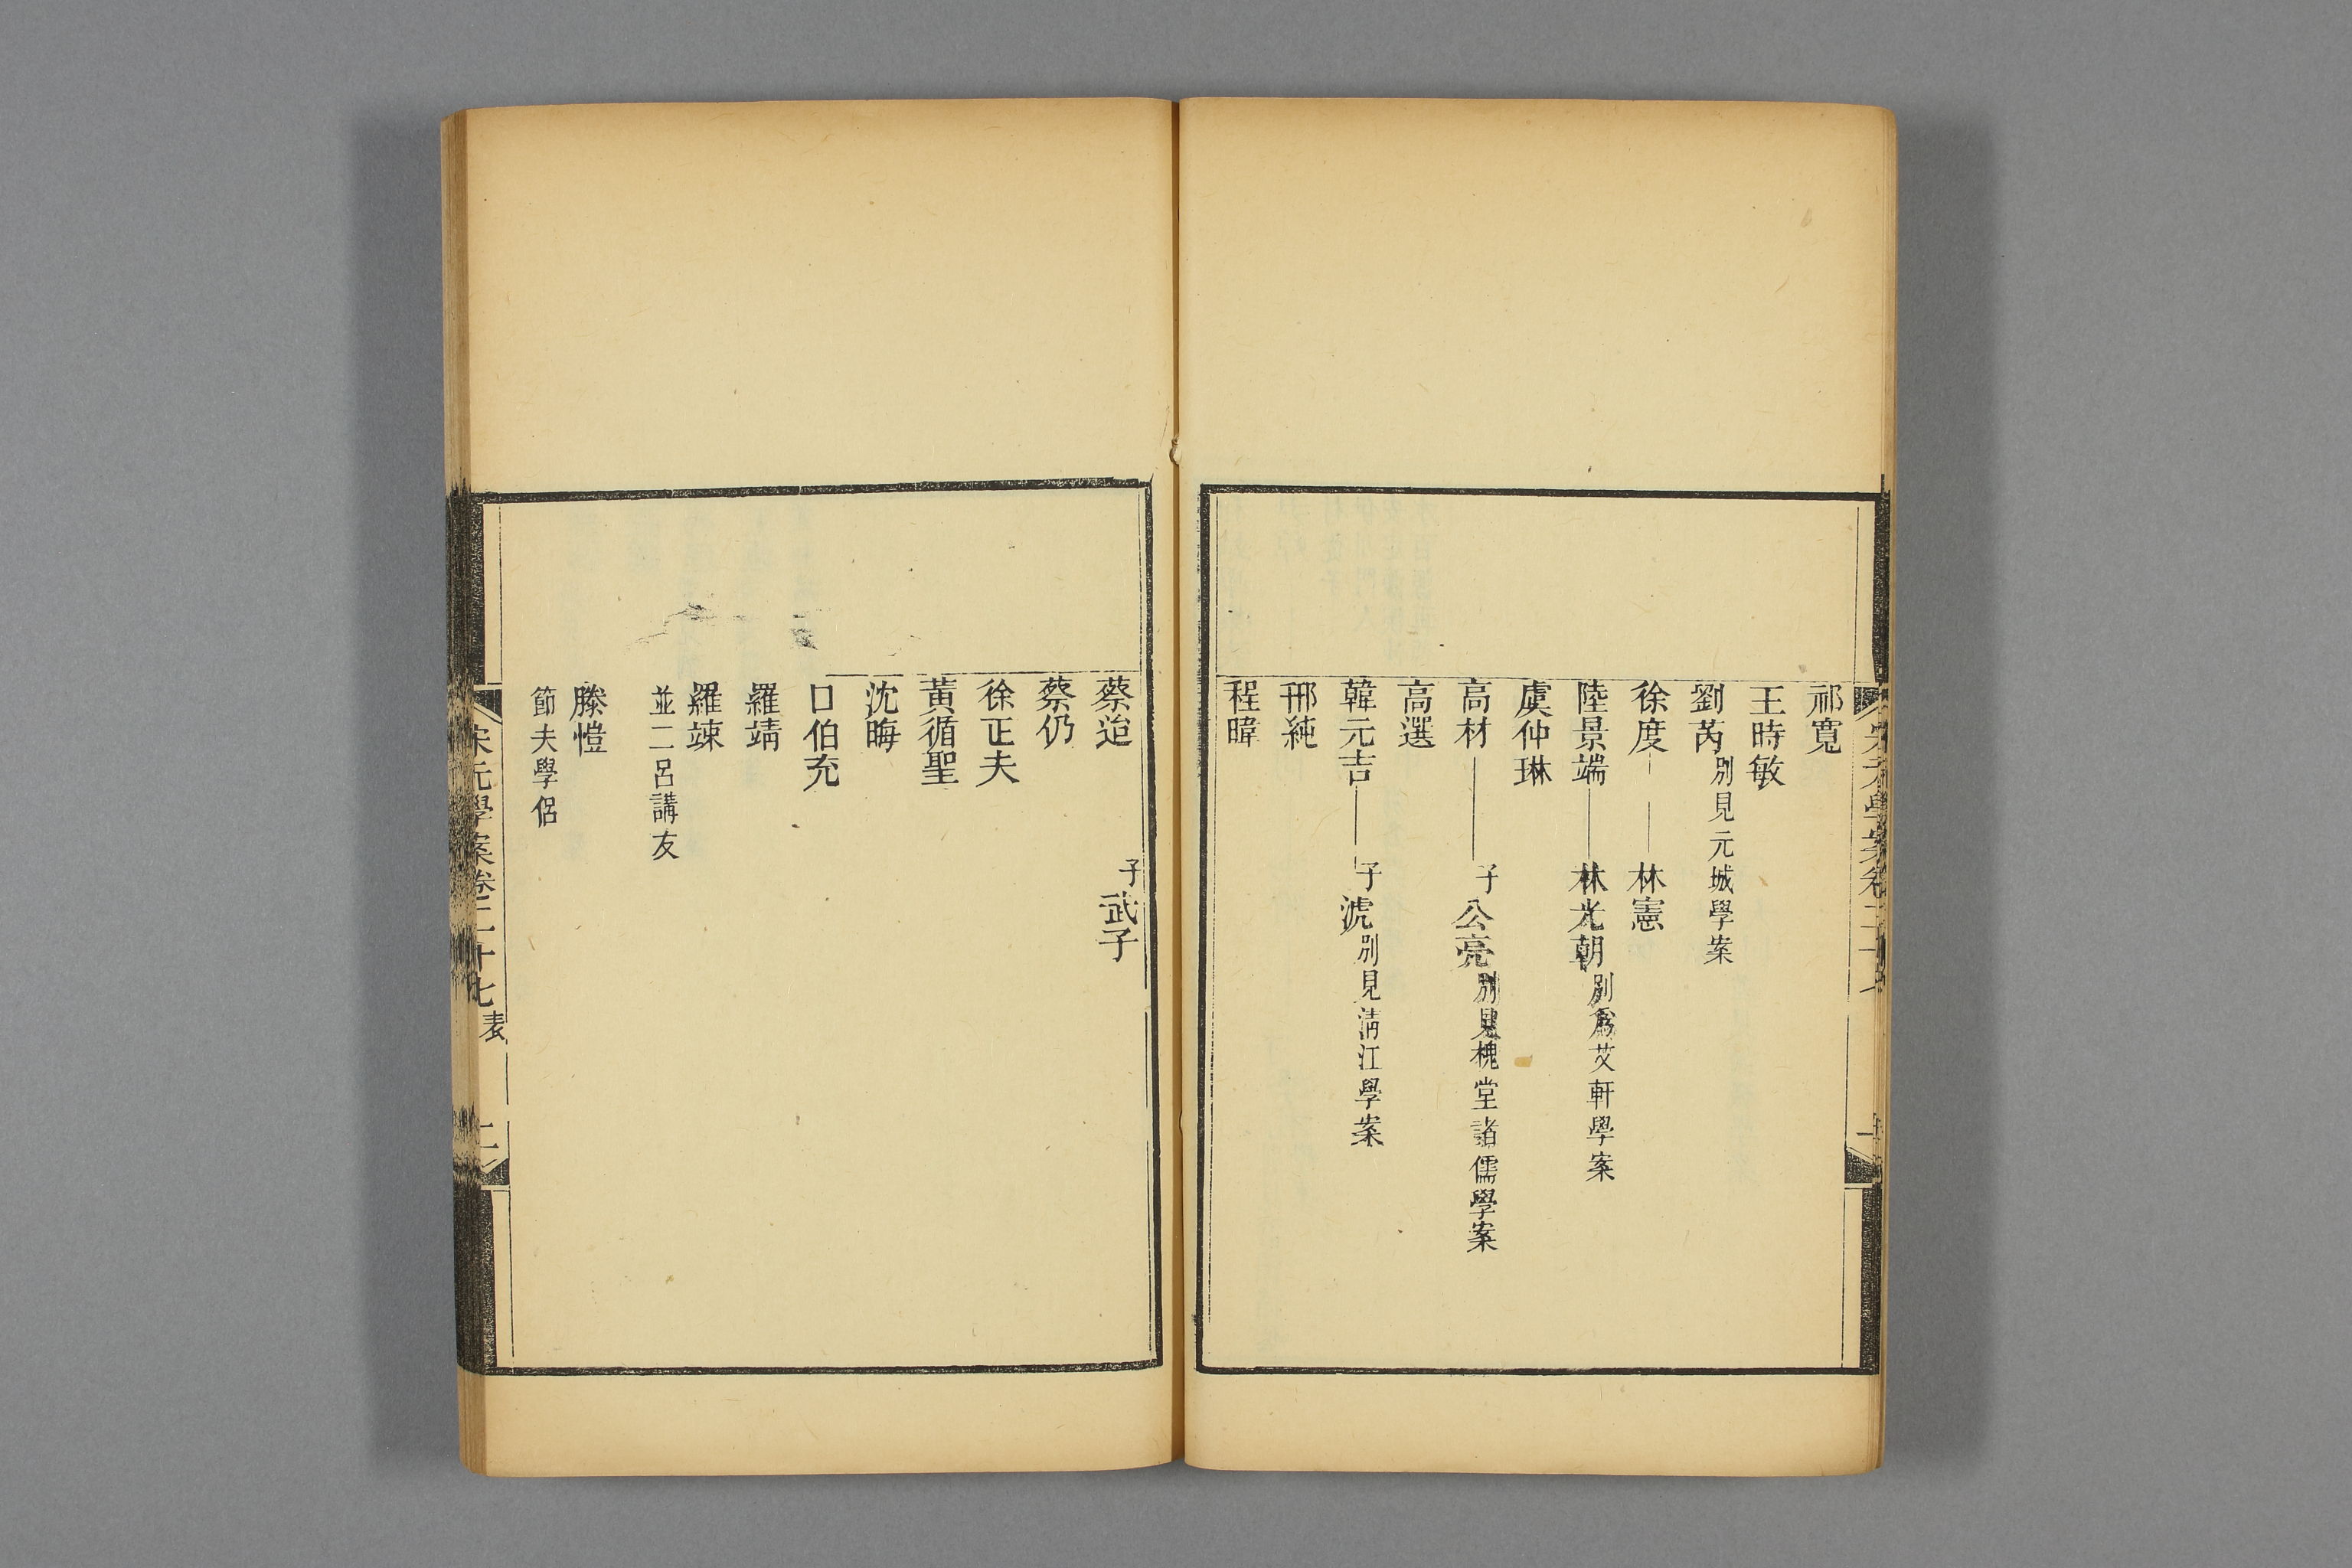 祁寬
王時敏
劉芮別見元城學案
徐度 林憲
陸景端 林光朝別爲艾軒學案
虞仲琳
高材 子公亮別見槐堂諸儒學案
高選
韓元吉 子淲別見淸江學案
邢純
程暐
蔡迨 子武子
蔡仍
徐正夫
黃循聖
沈晦
口伯充
羅靖
羅竦
並二呂講友
滕愷
節夫學侶
宋元學案卷二十七 表 二